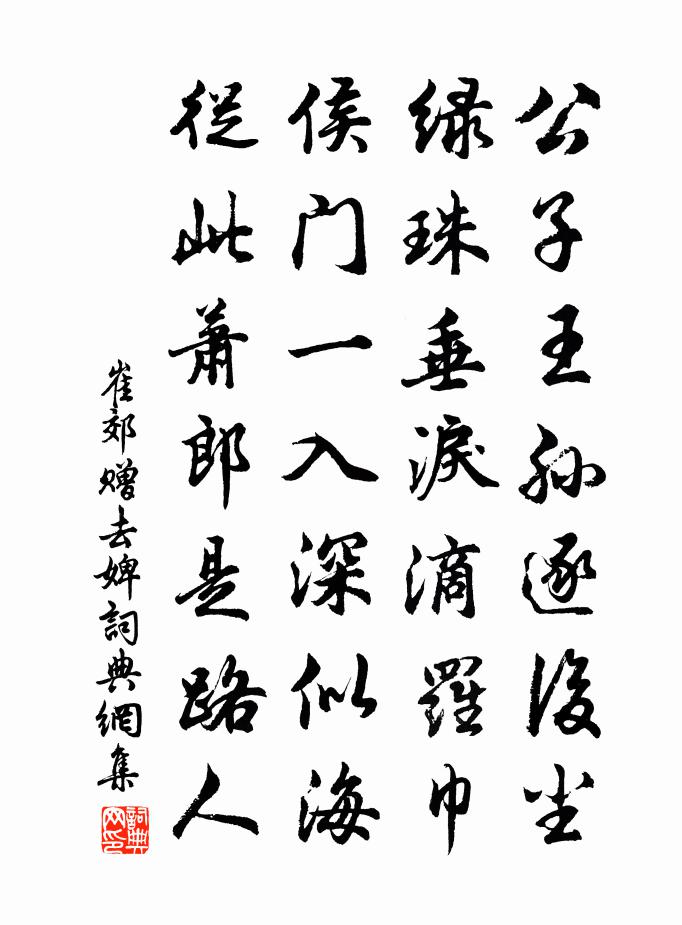 公子王孙逐後尘
绿珠垂淚滴羅巾
侯门一入深似海
從此萧郎是路人
崔郊赠去婢詞典網集
詞典网印